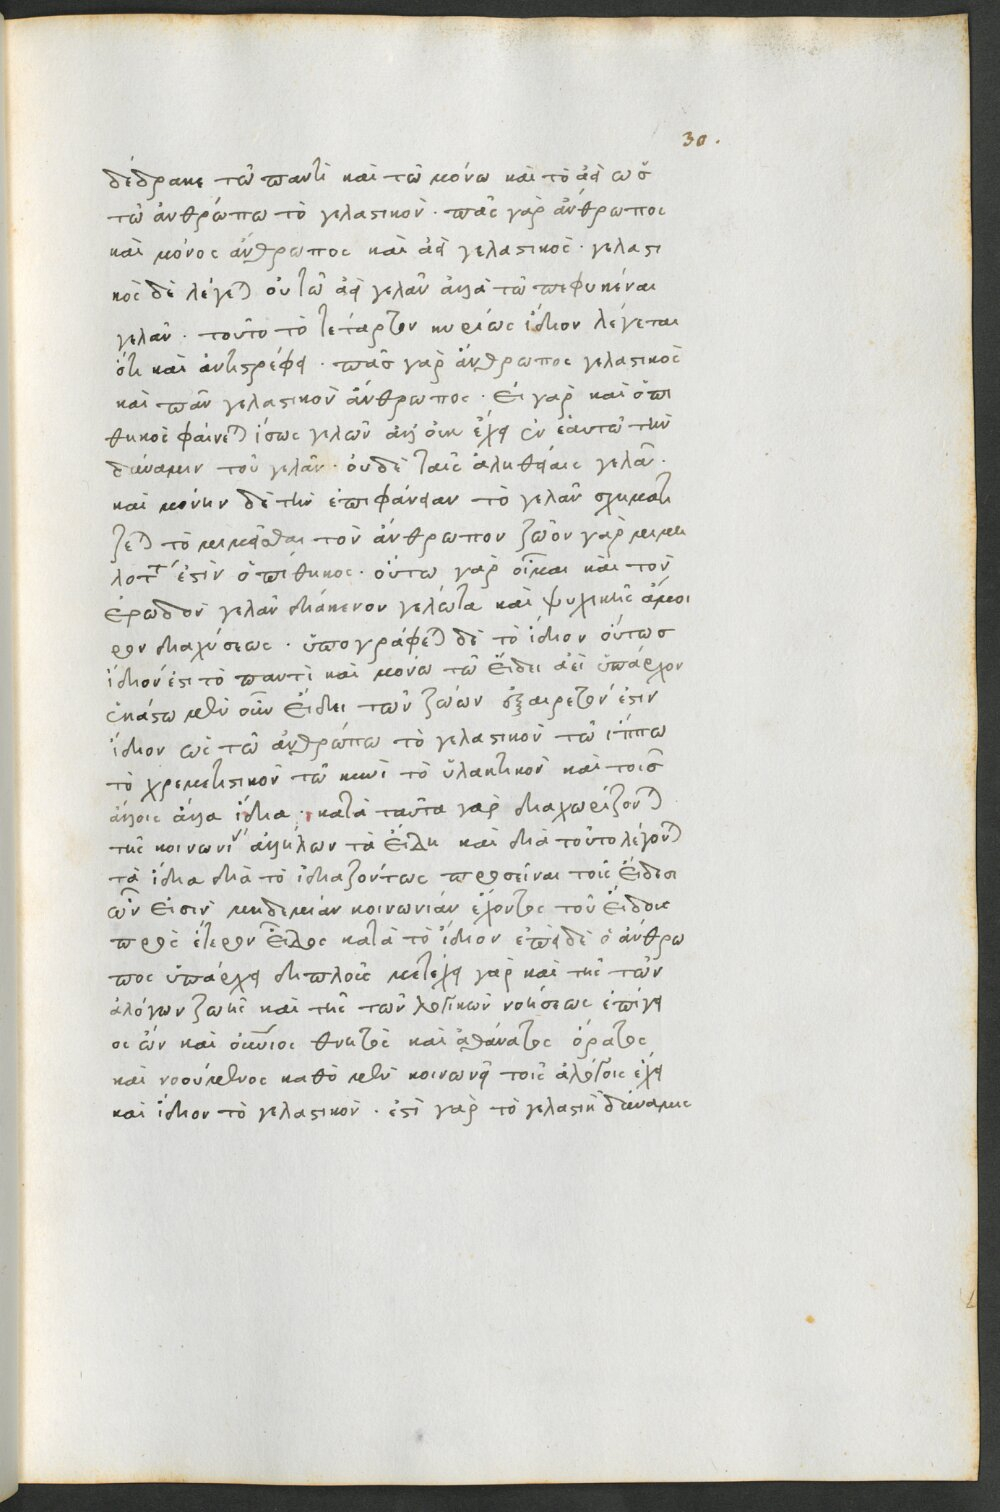 30.
δέδρακε τῶ παντὶ καὶ τῶ μόνω καὶ τὸ ἀεὶ ὡσ
τῶ ἀνθρώπω τὸ γελαστικὸν · πᾶς γὰρ ἄνθρωπος
καὶ μόνος ἄνθρωπος καὶ ἀεὶ γελαστικὸς · γελαστι
κὸς δὲ λέγεται οὐ τῶ ἀεὶ γελᾶν ἀλλὰ τῶ πεφυκέναι
γελᾶν · τοῦτο τὸ τέταρτον κυρίως ἴδιον λέγεται
ὅτι καὶ ἀντιστρέφει · πᾶσ γὰρ ἄνθρωπος γελαστικὸς
καὶ πᾶν γελαστικὸν ἄνθρωπος · εἰ γὰρ καὶ ὁ πί
θηκος φαίνεται ἴσως γελῶν ἀλλ' οὐκ ἔχει ἐν ἑαυτῶ τὴν
δύναμιν τοῦ γελᾶν · οὐδὲ ταῖς ἀληθείαις γελᾶν ·
καὶ μόνην δὲ τὴν ἐπιφάνειαν τὸ γελᾶν σχηματί
ζεται τὸ μιμεῖσθαι τὸν ἄνθρωπον ζῶον γὰρ μιμη
λότατον ἐστὶν ὁ πίθηκος · οὕτω γὰρ οἶμαι καὶ τὸν
ἐρωδὸν γελᾶν διάκενον γέλωτα καὶ ψυχικῆς ἄμοι
ρον διαχύσεως · ὑπογράφεται δὲ τὸ ἴδιον οὕτωσ
ἴδιόν ἐστι τὸ παντὶ καὶ μόνω τῶ εἴδει ἀεὶ ὑπάρχον
ἑκάστω μὲν οὖν εἴδει τῶν ζώων ἐξαίρετόν ἐστιν
ἴδιον ὡς τῶ ἀνθρώπω τὸ γελαστικὸν τῶ ἵππω
τὸ χρεμετιστικὸν τῶ κυνὶ τὸ ὑλακτικὸν καὶ τοῖσ
ἄλλοις ἄλλα ἴδια · κατὰ ταῦτα γὰρ διαχωρίζονται
τῆς κοινωνίας ἀλλήλων τὰ εἴδη καὶ διὰ τοῦτο λέγονται
τὰ ἴδια διὰ τὸ ἰδιαζόντως προσεῖναι τοῖς εἴδεσι
ὧν εἰσὶν μηδεμίαν κοινωνίαν ἔχοντος τοῦ εἴδους
πρὸς ἕτερον εἶδος κατὰ τὸ ἴδιον ἐπεὶ δὲ ὁ ἄνθρω
πος ὑπάρχει διπλοῦς μετέχει γὰρ καὶ τῆς τῶν
ἀλόγων ζωῆς καὶ τῆς τῶν λογικῶν νοήσεως ἐπίγει
ος ὢν καὶ οὐράνιος θνητὸς καὶ ἀθάνατος ὁρατὸς
καὶ νοούμενος καθὸ μὲν κοινωνεῖ τοῖς ἀλόγοις ἔχει
καὶ ἴδιον τὸ γελαστικὸν · ἐστὶ γὰρ τὸ γελαστικὸν δύναμις